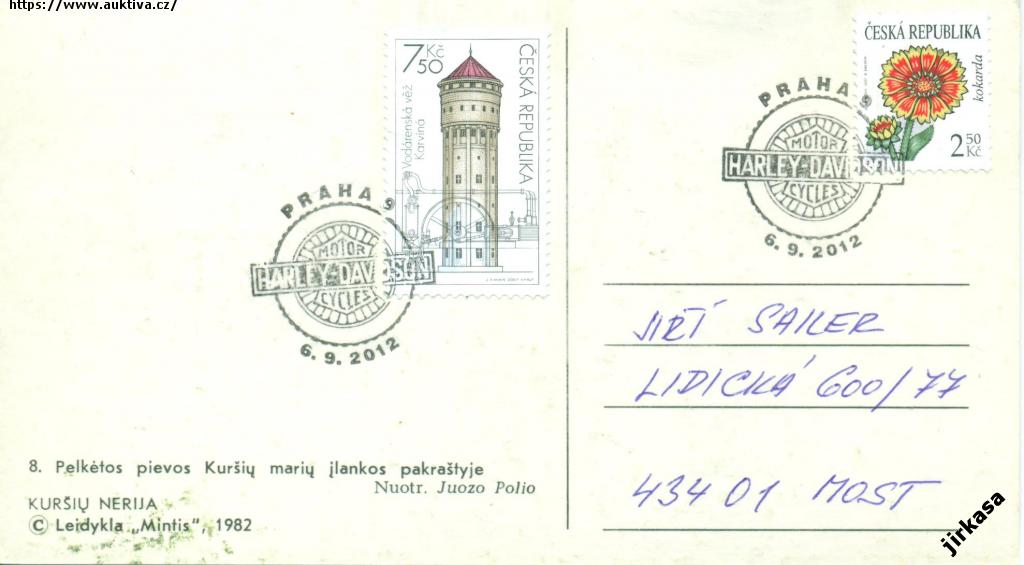 https://www.auktiva.cz/
7 50 Kč
ČESKÁ REPUBLIKA
Vodárenská věž
Karviná
PRAHA 9
MOTOR
HARLEY-DAVIDSON
CYCLES
6. 9. 2012
ČESKÁ REPUBLIKA
kokarda
2 50 Kč
PRAHA 9
MOTOR
HARLEY-DAVIDSON
CYCLES
6. 9. 2012
JIŘÍ SAILER
LIDICKÁ 600/77
434 01 MOST
8. Pelkėtos pievos Kuršių marių įlankos pakraštyje
Nuotr. Juozo Polio
KURŠIŲ NERIJA
© Leidykla „Mintis", 1982
jirkasa